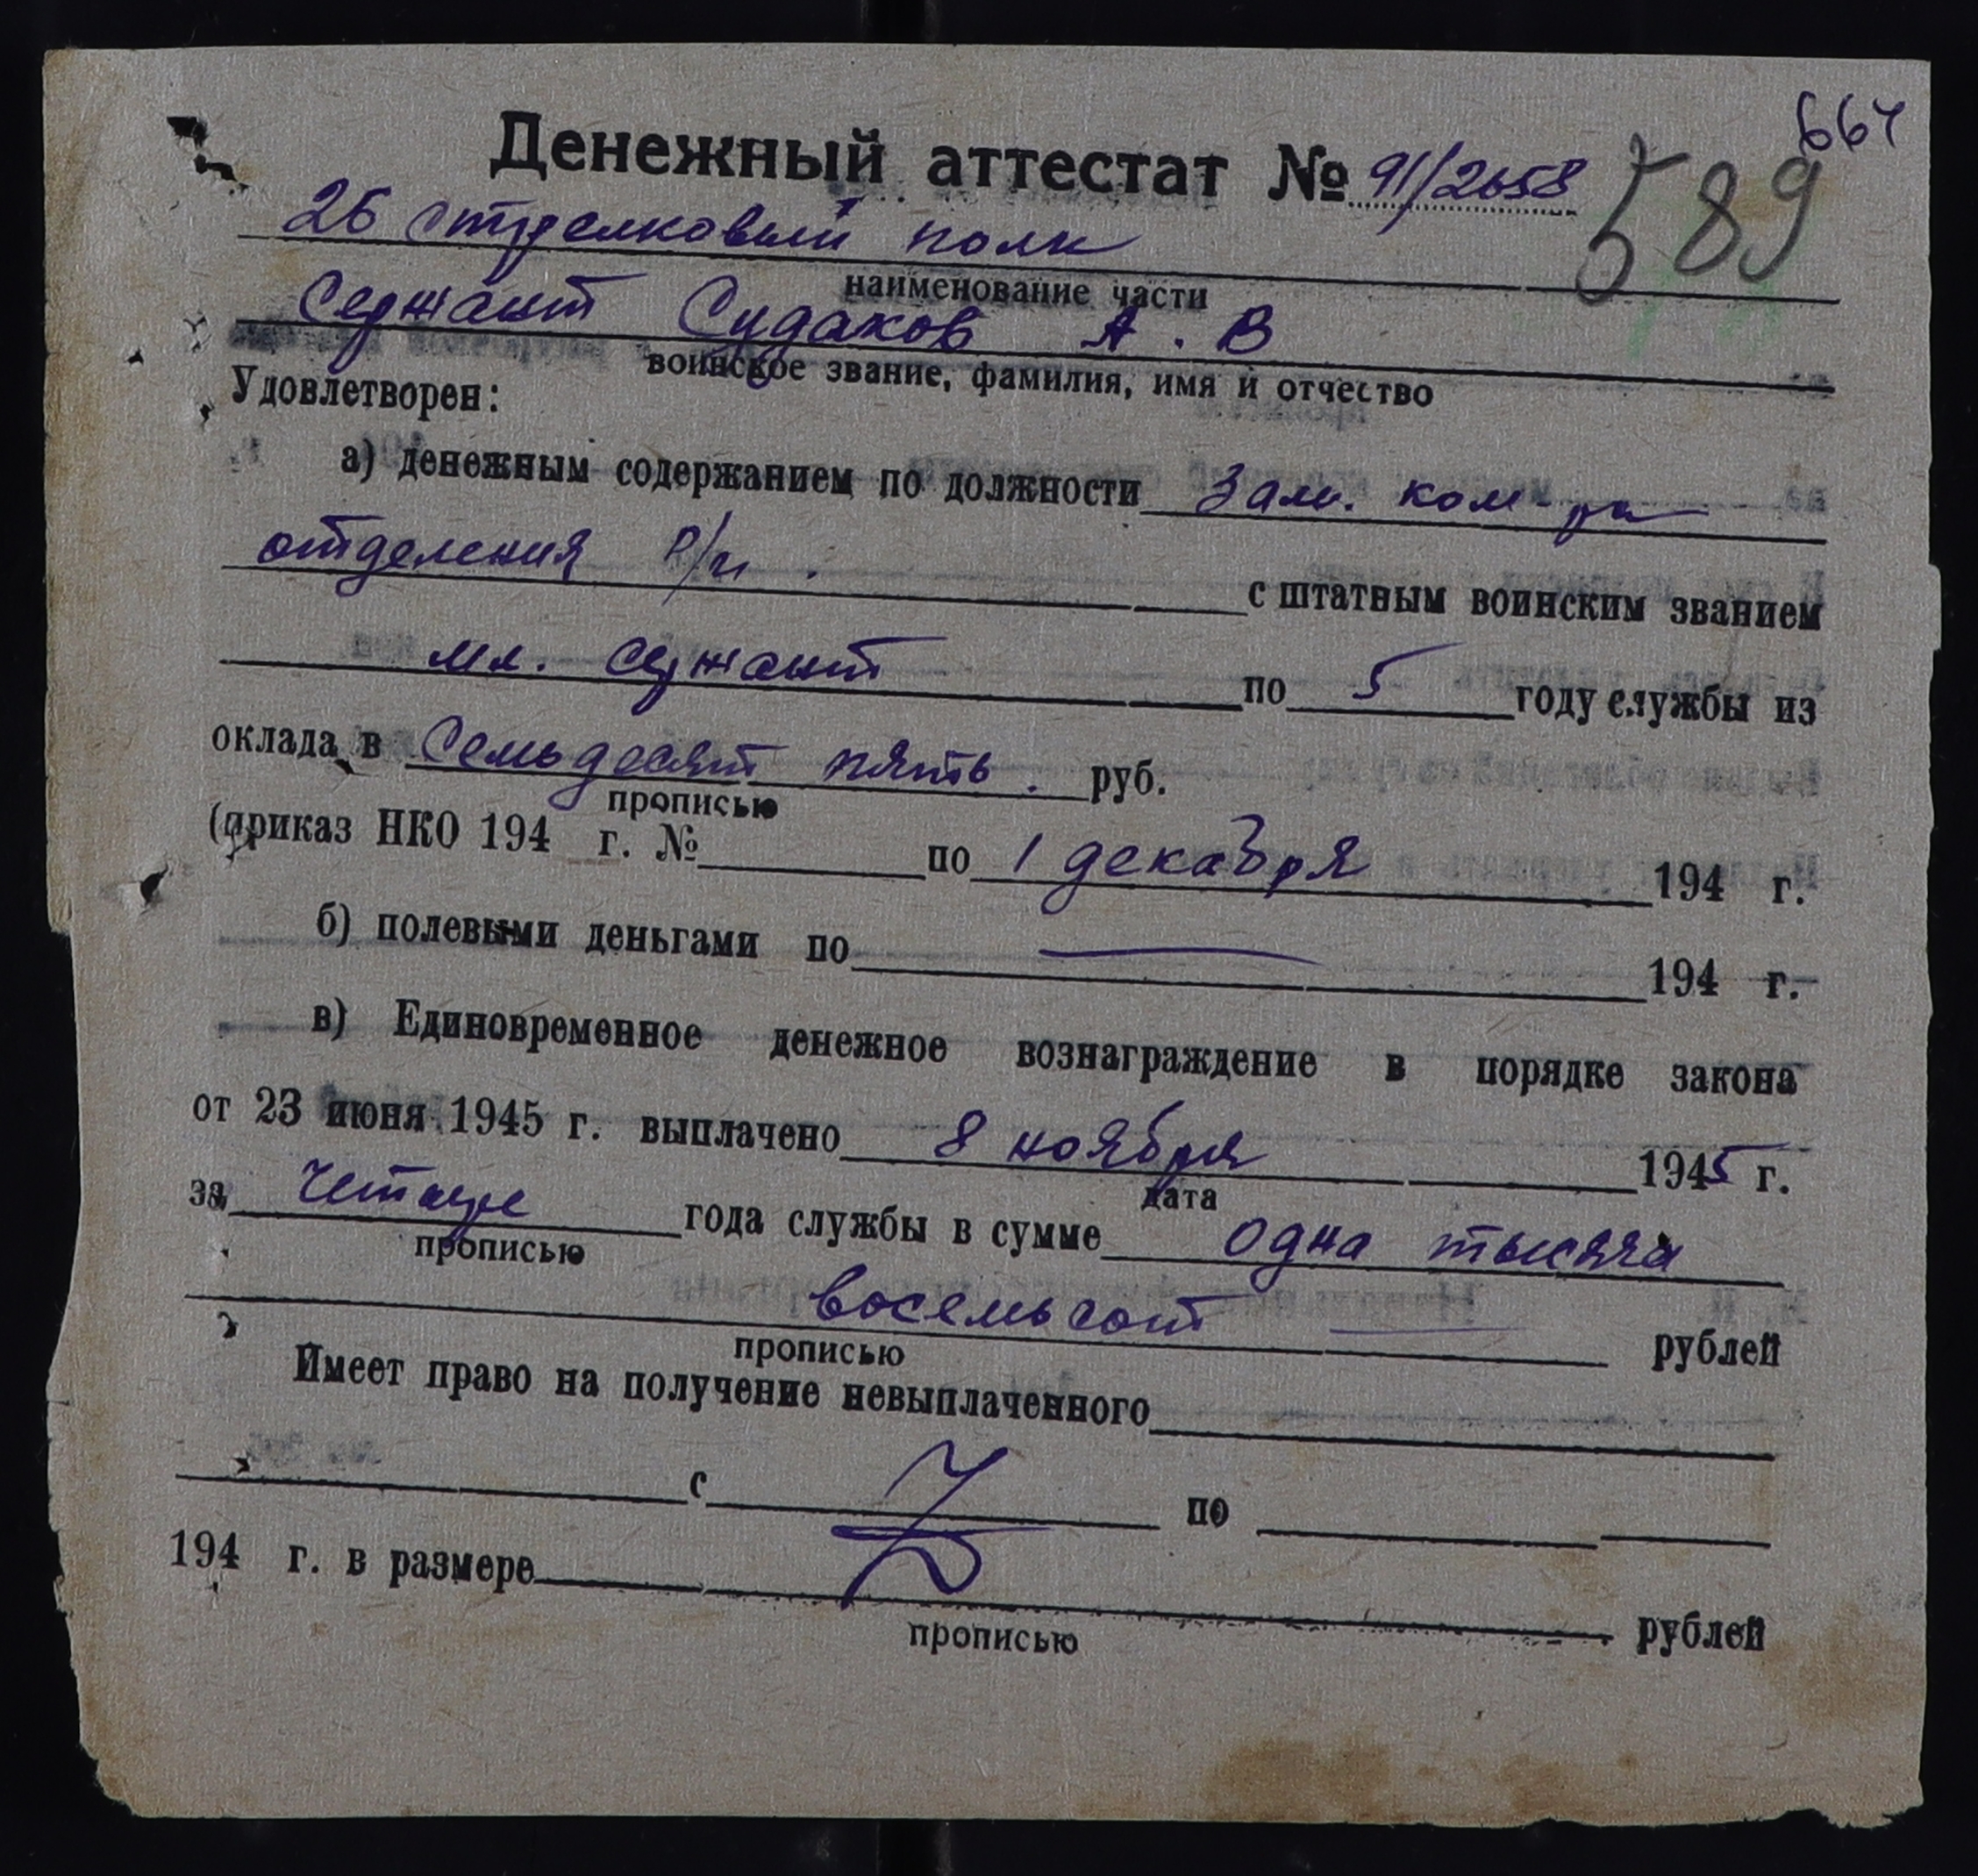 664
Денежный аттестат № 91/2658
589
26 стрелковый полк
наименование части
Сержант Судаков А. В
воинское звание, фамилия, имя и отчество
Удовлетворен:
а) денежным содержанием по должности Зам. ком-ра
отделения Р/п.
с штатным воинским званием
мл. сержант по 5 году службы из
оклада в Семьдесят пять. руб.
прописью
(приказ НКО 194 г. № по 1 декабря 194 г.
б) полевыми деньгами по — 194 г.
в) Единовременное денежное вознаграждение в порядке закона
от 23 июня 1945 г. выплачено 8 ноября 1945 г.
дата
за четыре года службы в сумме одна тысяча
прописью
восемьсот — рублей
прописью
Имеет право на получение невыплаченного
с по
194 г. в размере рублей
прописью